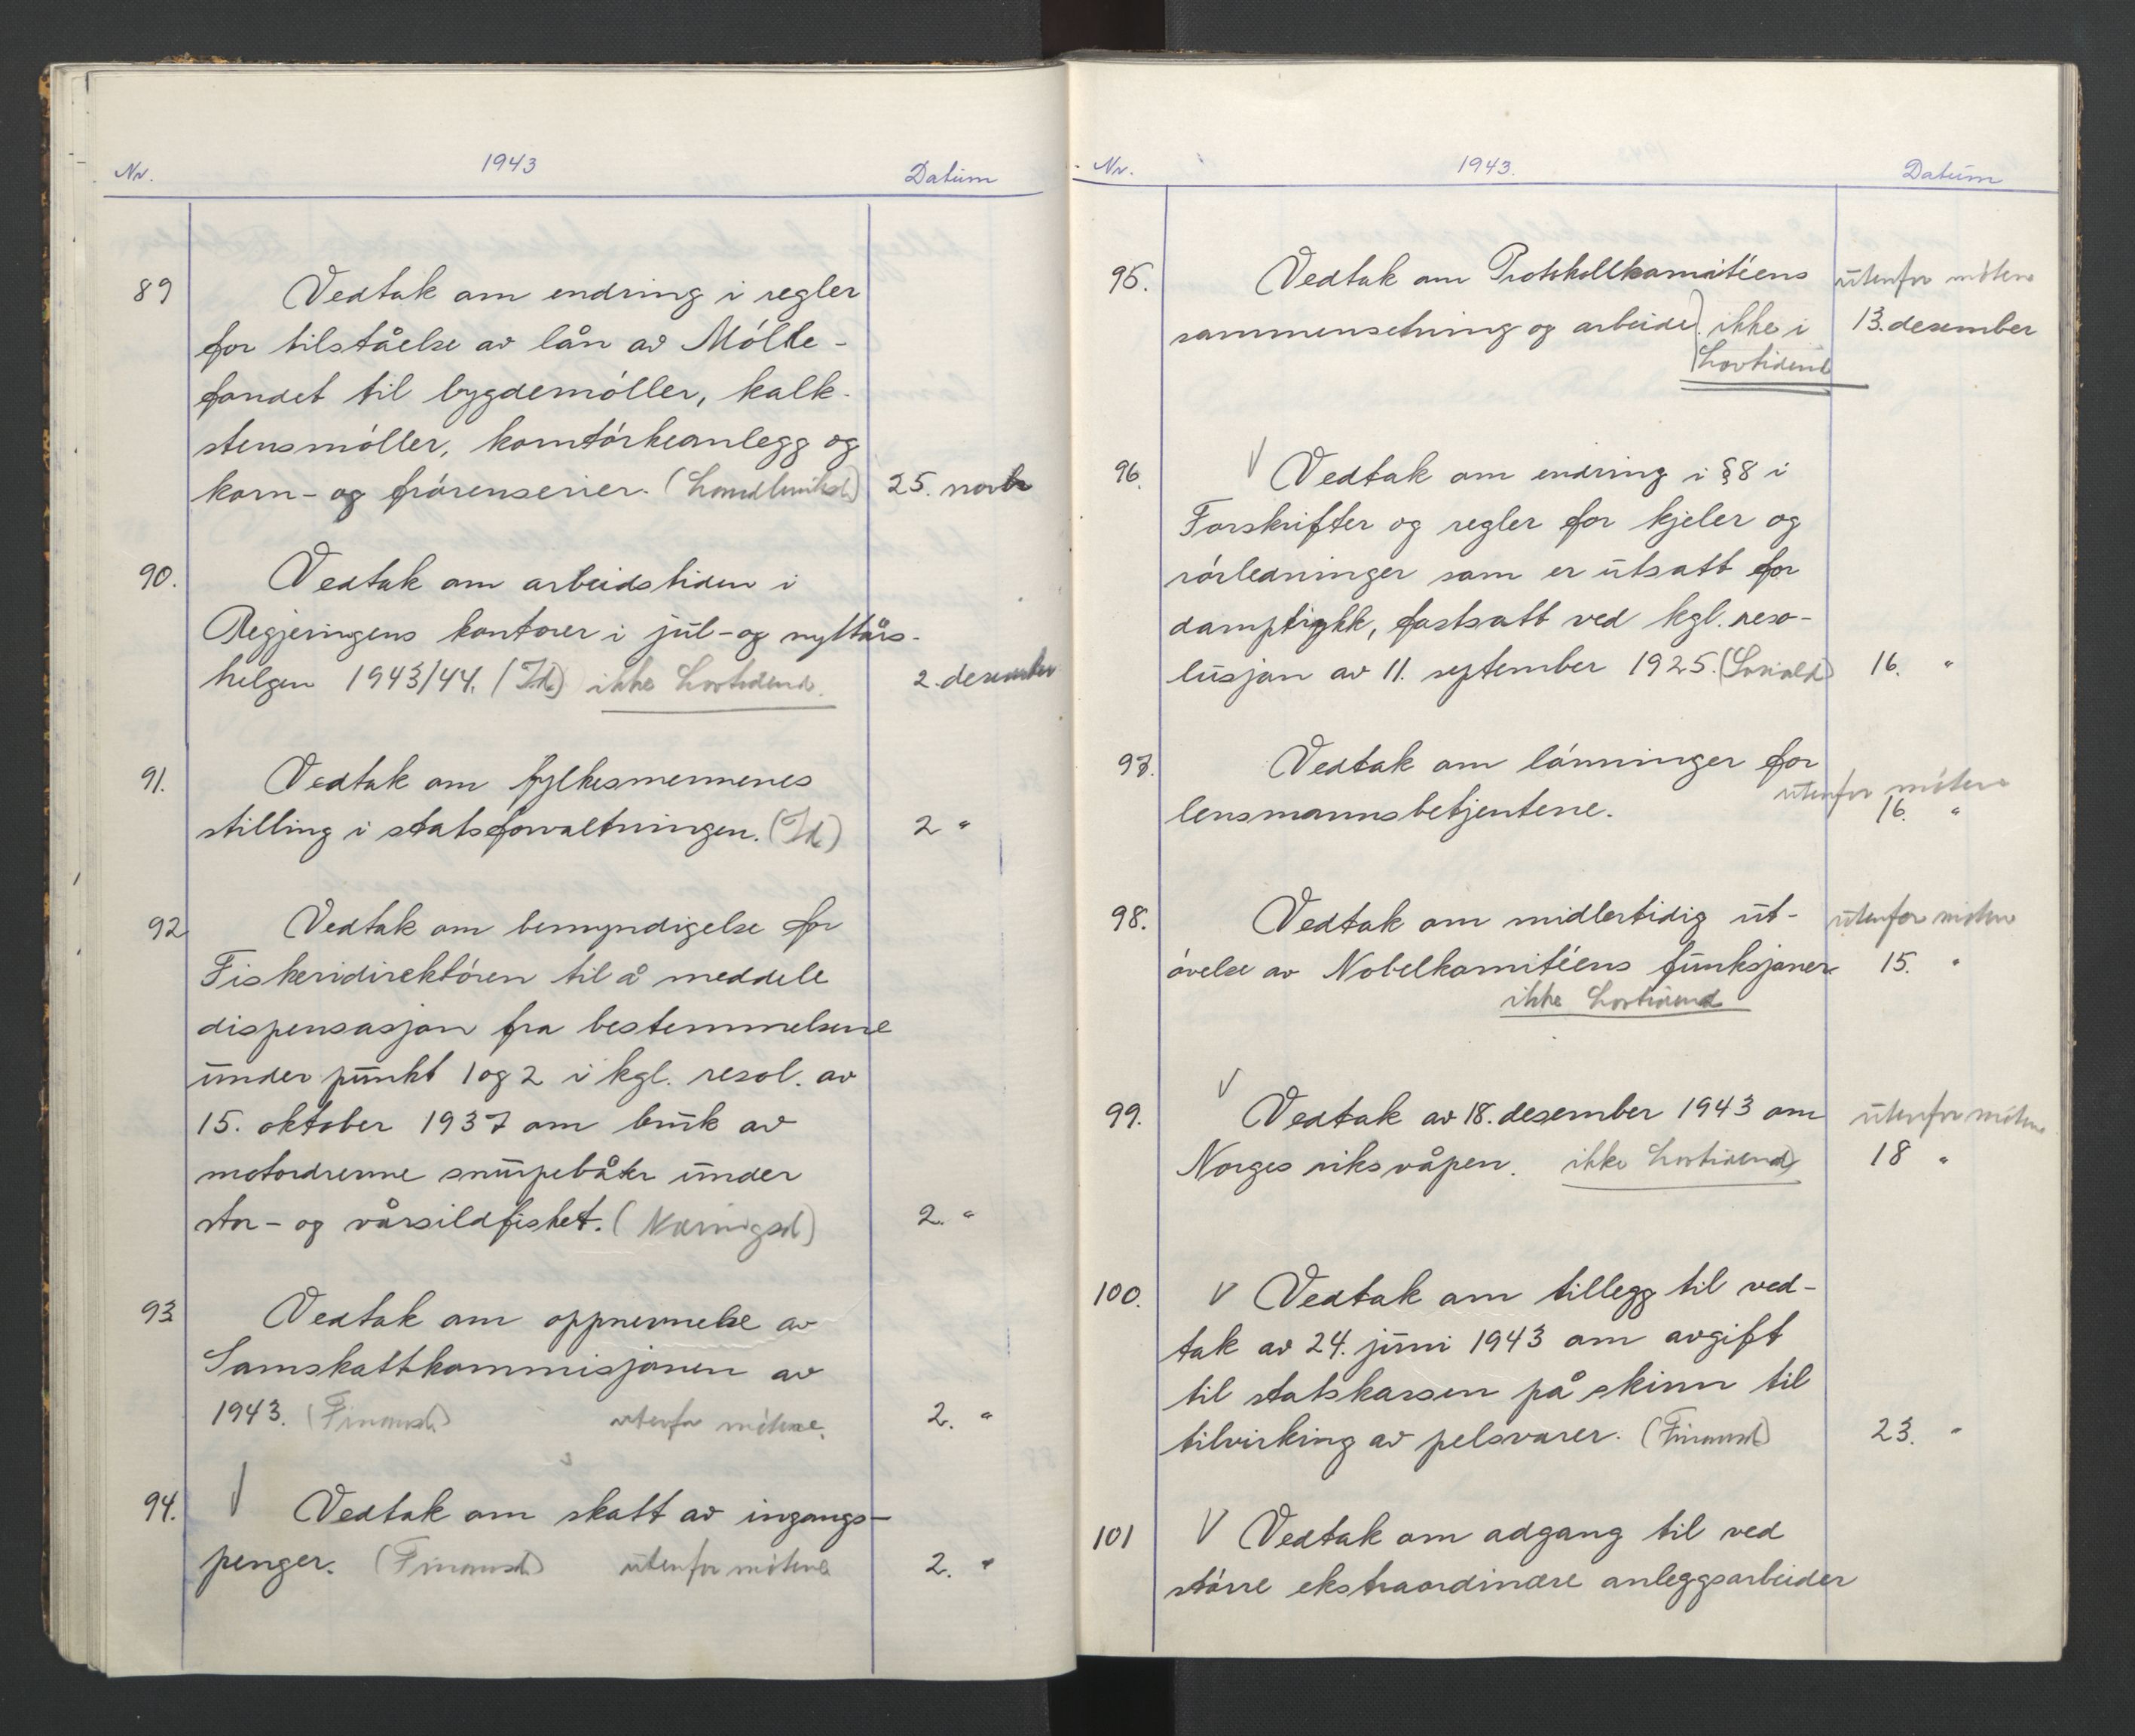 Nr. 1943 Datum
89 Vedtak om endring i regler
for tilståelse av lån av Mölle-
fondet til bygdemöller, kalk-
stensmöller, korntörkeanlegg og
korn- og frörenserier. (Landbruksd.) 25. novbr
90. Vedtak om arbeidstiden i
Regjeringens kontorer i jul- og nyttårs-
helgen 1943/44. (Id.) ikke Lovtidend. 2. desember
91. Vedtak om fylkesmennenes
stilling i statsforvaltningen. (Id.) 2 "
92 Vedtak om bemyndigelse for
Fiskeridirektören til å meddele
dispensasjon fra bestemmelsene
under punkt 1 og 2 i kgl. resol. av
15. oktober 1937 om bruk av
motordrevne snurpebåter under
stor- og vårsildfisket. (Næringsd) 2. "
93 Vedtak om oppnevnelse av
Samskattkommisjonen av
1943. (Finansd.) utenfor mötene. 2. "
94. V Vedtak om skatt av ingangs-
penger. (Finansd.) utenfor mötene 2. "
Nr. 1943. Datum
95. Vedtak om Protokollkomitéens utenfor mötene
sammensetning og arbeide. ikke i 13. desember
Lovtidend
96. V Vedtak om endring i § 8 i
Forskrifter og regler for kjeler og
rörledninger som er utsatt for
damptrykk, fastsatt ved kgl. reso-
lusjon av 11. september 1925. (Sosiald) 16. "
97. Vedtak om lönninger for
utenfor mötene
lensmannsbetjentene. 16. "
98. Vedtak om midlertidig ut- utenfor mötene
övelse av Nobelkomitéens funksjoner 15. "
ikke Lovtidend
99. V Vedtak av 18. desember 1943 om utenfor mötene
Norges riksvåpen. ikke Lovtidend 18 "
100. V Vedtak om tillegg til ved-
tak av 24. juni 1943 om avgift
til statskassen på skinn til
tilvirking av pelsvarer. (Finansd.) 23. "
101 V Vedtak om adgang til ved
större ekstraordinære anleggsarbeider